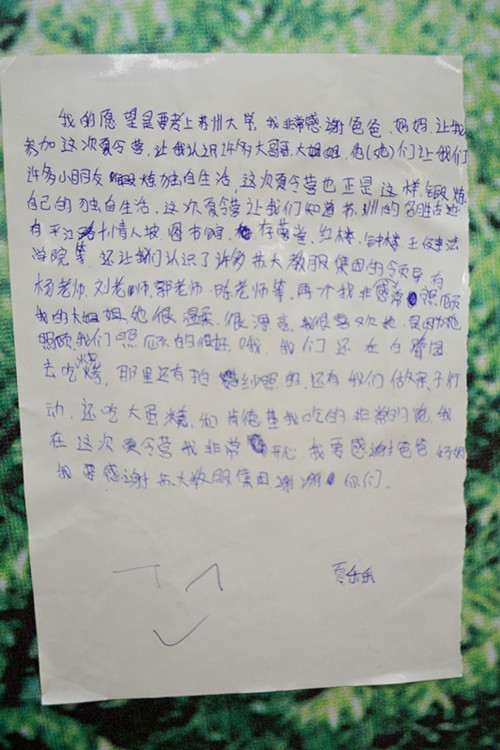 我的愿望是要考上苏州大学。我非常感谢爸爸、妈妈、让我
参加这次夏令营,让我认识许多大哥哥、大姐姐,他(她)们让我们
许多小朋友锻炼独自生活,这次夏令营也正是这样锻炼
自己的独自生活,这次夏令营让我们知道苏州的名胜古迹
有平江路情人坡 图书馆 存菊堂,红楼、钟楼 王健法
学院等,还让我们认识了许多苏大教服集团的领导有
杨老师、刘老师、郭老师、陈老师等,再个我非常 照顾
我的大姐姐她很温柔、很漂亮,我很喜欢她,是因为她
照顾我们照顾的很好,哦,我们还在白鹭园
去吃烧烤,那里还有拍婚纱照的,还有我们做亲子行
动,还吃大蛋糕,和肯德基我吃的非常的饱,我
在这次夏令营我非常开心,我要感谢爸爸妈妈
我要感谢苏大教服集团谢谢你们。
贾乐乐